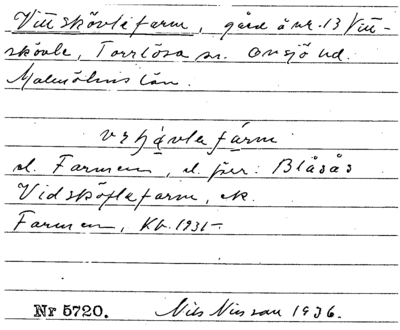 Vittskövlefarm, gård å nr. 13 Vitt-
skövle, Torrlösa sn. Onsjö hd.
Malmöhus län.
farm
el. Farmen, el. för: Blåsås
Vidsköflefarm, ek.
Farmen, Kb. 1931–
Nr 5720. Nils Nilsson 1936.